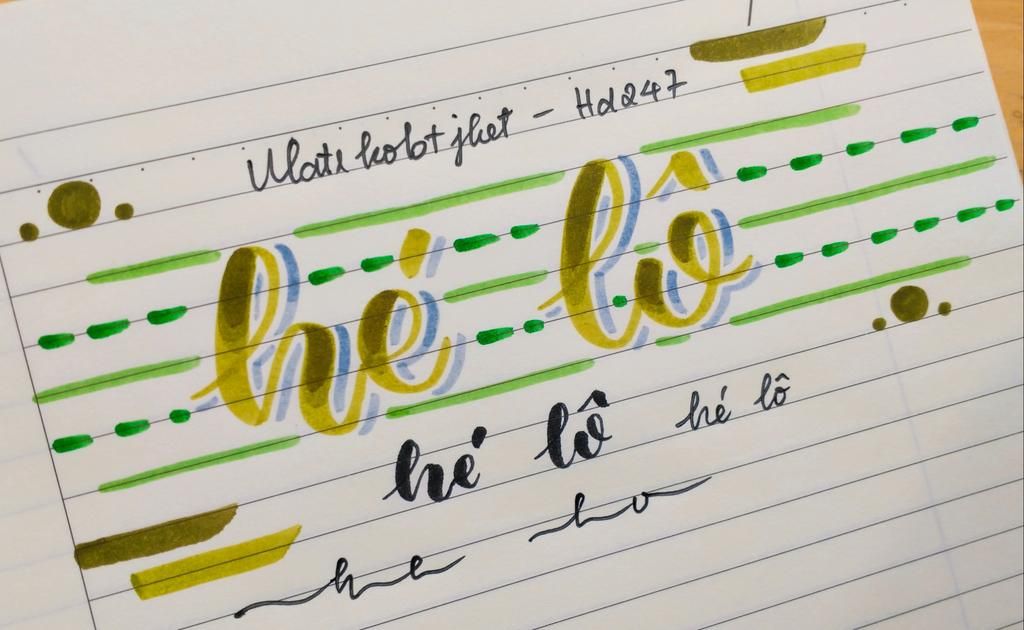 Matikobt jket - Hd247
hé lô
hé lô hé lô
he ho